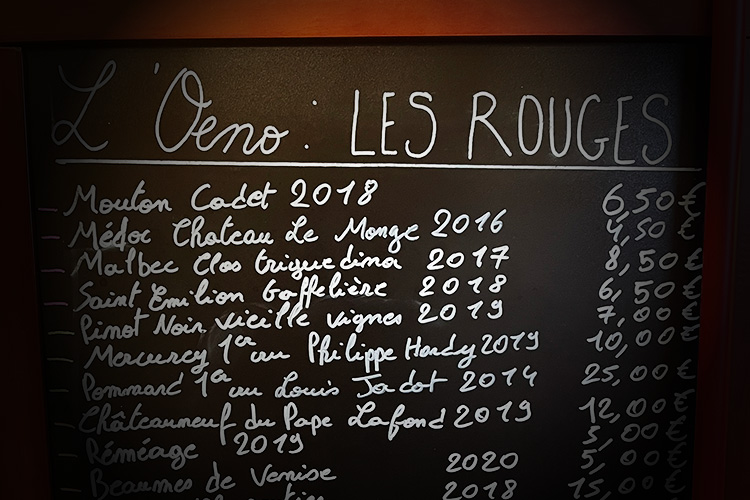 L'Oeno : LES ROUGES
Mouton Cadet 2018 6,50€
Médoc Chateau Le Monge 2016 4,50€
Malbec Clos Triguedina 2017 8,50€
Saint Emilion Gaffelière 2018 6,50€
Pinot Noir vieille vignes 2019 7,00€
Mercurey 1er cru Philippe Hardy 2019 10,00€
Pommard 1er cru Louis Jadot 2014 25,00€
Châteauneuf du Pape Lafond 2019 12,00€
Réméage 2019 5,00€
Beaumes de Venise 2020 5,00€
2018 15,00€